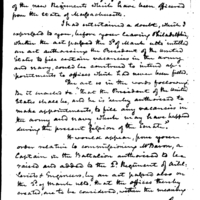 of the new Regiment which have been officered
from the State of Massachusetts.
I had entertained a doubt, which I
expressed to you, before your leaving Philadelphia,
whether the act passed the 3d of March ulto. entitled
an act authorising the President of the United
States to fill certain vacancies in the army
and navy, could be construed to intend ap-
pointments to offices which had never been filled.
The act is in the words following
Be it enacted &c. That the President of the United
States shall be, and he is hereby authorised to
make appointments to fill any vacancies in
the army and navy which may have happened
during the present session of the Senate.
It would appear, from your
own relative to commissioning
Captain in the Battalion authorised to be
raised and added to the 2d Regiment of Artil-
lerists & Engineers, by an act passed also on
the 3d of March ulto, that the offices thereby
created, are to be considered, within the meaning